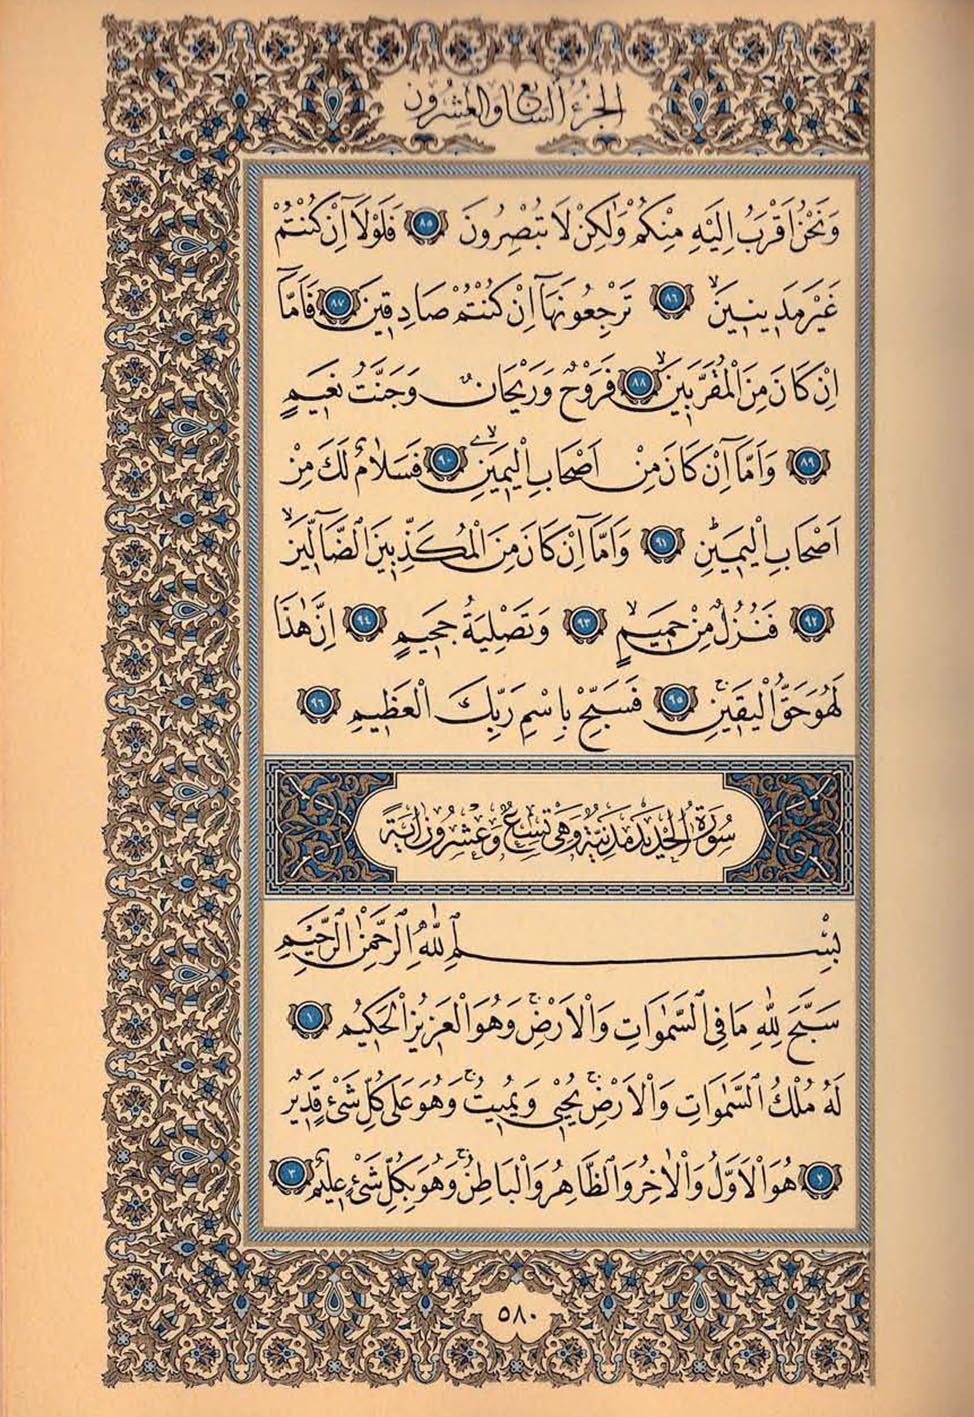 الجزء السابع والعشرون
وَنَحْنُ اَقْرَبُ اِلَيْهِ مِنْكُمْ وَلٰكِنْ لَا تُبْصِرُونَ ٨٥ فَلَوْلَٓا اِنْ كُنْتُمْ
غَيْرَ مَدٖينٖينَۙ ٨٦ تَرْجِعُونَهَٓا اِنْ كُنْتُمْ صَادِقٖينَ ٨٧ فَاَمَّٓا
اِنْ كَانَ مِنَ الْمُقَرَّبٖينَۙ ٨٨ فَرَوْحٌ وَرَيْحَانٌ وَجَنَّتُ نَعٖيمٍ
٨٩ وَاَمَّٓا اِنْ كَانَ مِنْ اَصْحَابِ الْيَمٖينِۙ ٩٠ فَسَلَامٌ لَكَ مِنْ
اَصْحَابِ الْيَمٖينِؕ ٩١ وَاَمَّٓا اِنْ كَانَ مِنَ الْمُكَذِّبٖينَ الضَّٓالّٖينَۙ
٩٢ فَنُزُلٌ مِنْ حَمٖيمٍۙ ٩٣ وَتَصْلِيَةُ جَحٖيمٍ ٩٤ اِنَّ هٰذَا
لَهُوَ حَقُّ الْيَقٖينِۚ ٩٥ فَسَبِّحْ بِاسْمِ رَبِّكَ الْعَظٖيمِ ٩٦
سُورَةُ الْحَدٖيدِ مَدَنِيَّةٌ وَهِيَ تِسْعٌ وَعِشْرُونَ اٰيَةً
بِسْمِ اللّٰهِ الرَّحْمٰنِ الرَّحٖيمِ
سَبَّحَ لِلّٰهِ مَا فِي السَّمٰوَاتِ وَالْاَرْضِۚ وَهُوَ الْعَزٖيزُ الْحَكٖيمُ ١
لَهُ مُلْكُ السَّمٰوَاتِ وَالْاَرْضِۚ يُحْيٖ وَيُمٖيتُۚ وَهُوَ عَلٰى كُلِّ شَيْءٍ قَدٖيرٌ
٢ هُوَ الْاَوَّلُ وَالْاٰخِرُ وَالظَّاهِرُ وَالْبَاطِنُۚ وَهُوَ بِكُلِّ شَيْءٍ عَلٖيمٌ ٣
٥٨٠